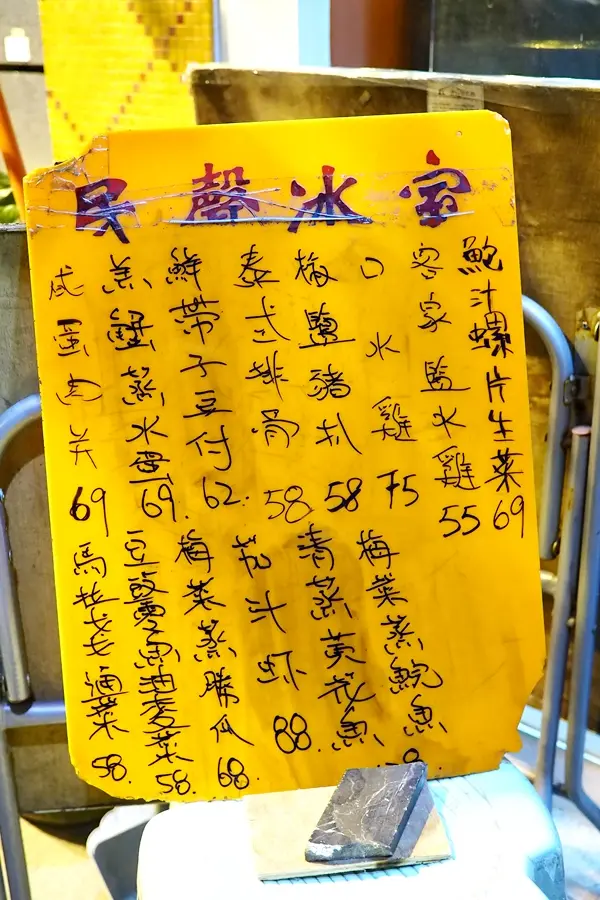 民聲冰室
鮑汁螺片生菜69
客家監水雞55
口水雞75
椒鹽豬扒58
泰式排骨58
鮮帶子豆付62.
羔蟹蒸水蛋69.
咸蛋肉69
梅菜蒸鯇魚
青蒸黄花魚
茄汁虾88.
梅菜蒸勝瓜68.
豆豉鯪魚油麦菜58.
馬拉通菜58.